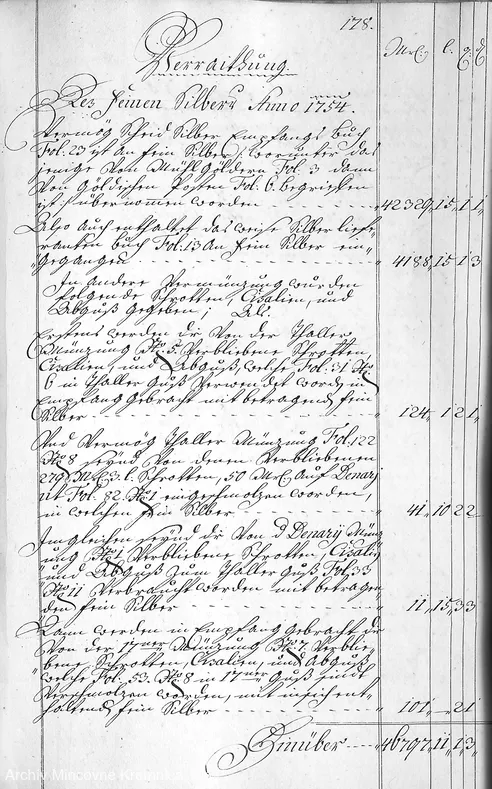 178.
Verraithung
Mrc. l. q. d.
Des Feinen Silbers Anno 1754.
Vermög Scheid Silber Empfangs Buch
Fol. 23 ist an fein Silber /: worunter das
jenige von Mühl Göldern Fol. 3 dann
von Göldischen Posten Fol. 6. begriffen
ist :/ übernommen worden 42329,, 15,, 1 1,,
Also auch enthaltet das weise Silber lief-
ranten buch Fol. 13 an fein Silber ein-
gegangen 4188,, 15,, 1 3
In andere Vermünzung wurden
folgende Schrotten, Cisalien, und
Abguß gegeben; Als:
Erstens werden die von der Thaller
Münzung No 5. Verbliebene Schrotten,
Cisalien, und Abguß, welche Fol. 31 No
6 in Thaller Guß verwendet worden, in
Empfang gebracht mit betragend fein
Silber 124,, 1 2 1,,
Und Vermög Thaller Münzung Fol. 122
No 8 seynd von denen Verbliebenen
279 Mrc 3. l. Schrotten, 50 Mrc auf Denary
ut Fol. 82. No 1 eingeschmolzen worden,
in welchen fein Silber 41,, 10 2 2
Imgleichen seynd die von d Denarij Münz
ung No 1 Verbliebene Schrotten, Cisalien
und Abguß zum Thaller Guß Fol. 33
No 11 Verbraucht worden mit betragen
den fein Silber 11,, 15,, 3 3
Dann werden in Empfang gebracht die
von der 17ner Münzung No 7. Verblie-
bene Schrotten, Cisalien, und Abguß
welche Fol. 53. No 8 in 17ner Guß sindt
Verschmolzen worden, mit in sich ent-
haltend fein Silber 101,, - 2 1
Hinüber 46797,, 11,, 1 3
Archív Mincovne Kremnica